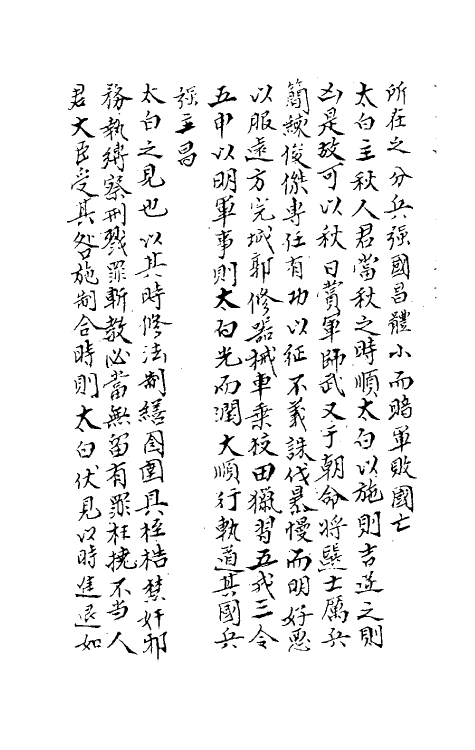 所在之分兵强國昌體小而暗軍敗國亡
太白主秋人君當秋之時順太白以施則吉逆之則
凶是故可以秋日賞軍師武又于朝命將選士厲兵
簡練俊傑專任有功以征不義誅伐暴慢而明好惡
以服遠方完城郭修器械車乗校田獵習五戎三令
五申以明軍事則太白光而潤大順行軌道其國兵
强主昌
太白之見也以其時修法制繕囹圄具桎梏禁奸邪
務執縛察刑戮罪斬教必當無留有罪枉撓不当人
君大臣受其咎施制合時則太白伏見以時進退如